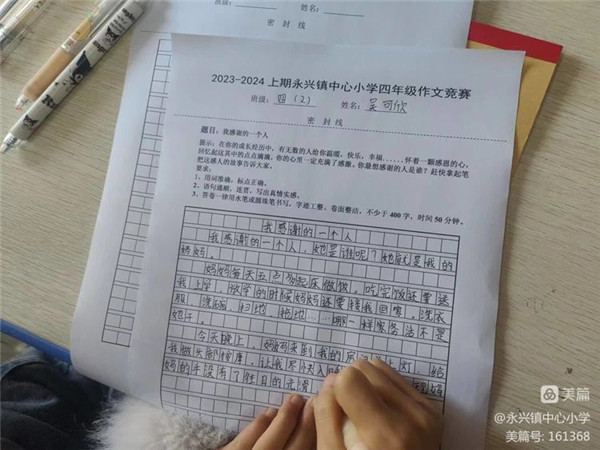 班级: 姓名:
密 封 线
2023-2024上期永兴镇中心小学四年级作文竞赛
班级: 四(2) 姓名: 吴可欣
密 封 线
题目：我感谢的一个人
提示：在你的成长经历中，有无数的人给你温暖、快乐、幸福……怀着一颗感恩的心，
回忆起这其中的点点滴滴，你的心里一定充满了感激。你最想感谢的人是谁？赶快拿起笔
把这感人的故事告诉大家。
要求：
1、用词准确，标点正确。
2、语句通顺、连贯，写出真情实感。
3、答卷一律用水笔或圆珠笔书写，字迹工整，卷面整洁，不少于 400 字，时间 50 分钟。
我感谢的一个人
我感谢的一个人，她是谁呢？她就是我的
妈妈。
妈妈每天五点多起床做饭。吃完饭还要送
我上学，放学的时候妈妈还要接我回家。洗衣
服，洗碗，扫地，拖地……哪一样家务活不是
她干。
今天晚上，妈妈来到我的房间
我做头部按摩，让我尽快入
妈的手没有了往日的光滑
美篇
@永兴镇中心小学
美篇号: 161368